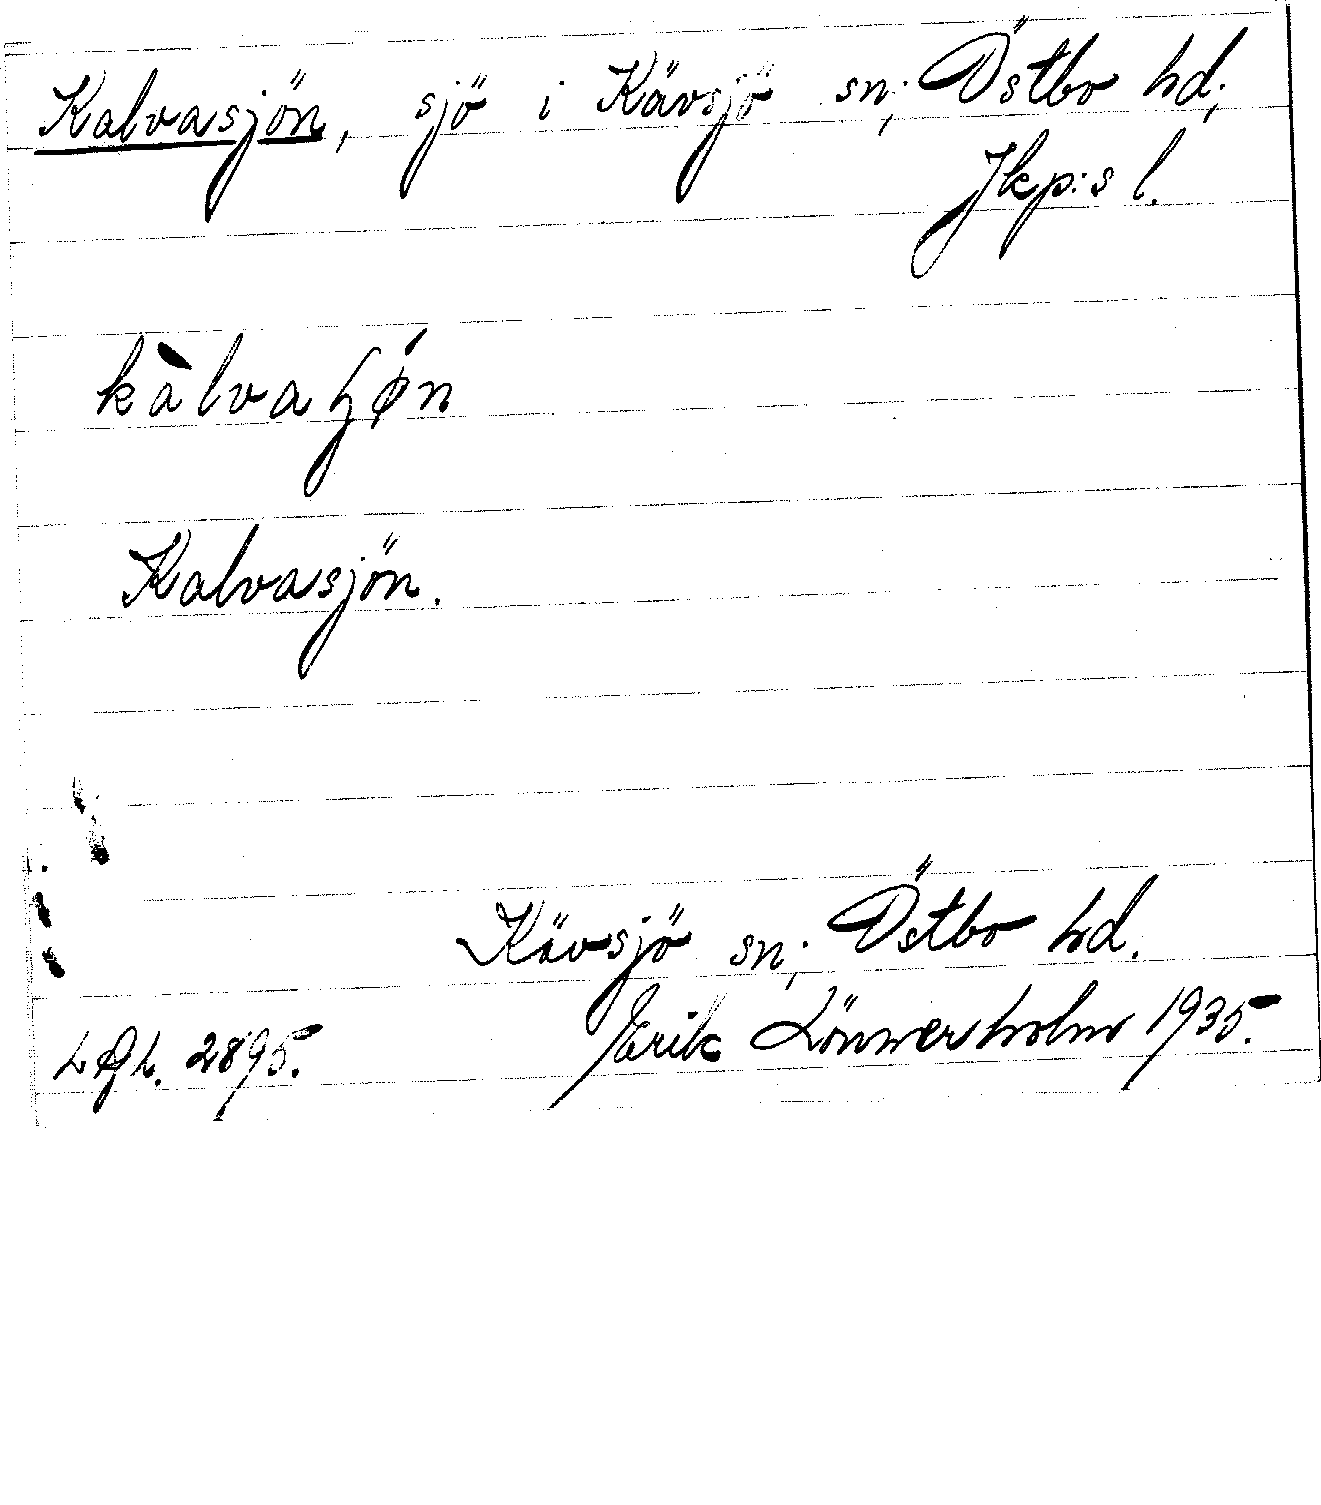 Kalvasjön, sjö i Kävsjö sn; Östbo hd;
Jkp:s l.
kàlvaɧǿn
Kalvasjön.
Kävsjö sn; Östbo hd.
2895. Erik Lönnerholm 1935.